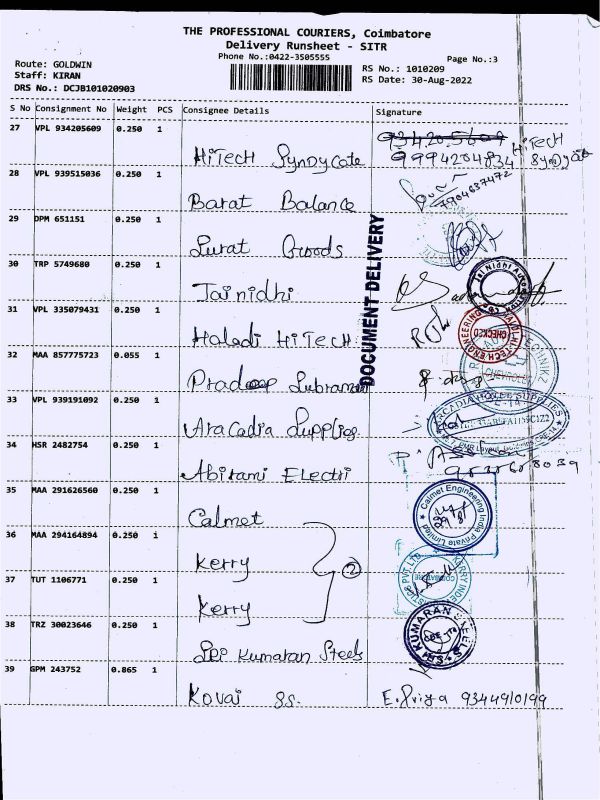 THE PROFESSIONAL COURIERS, Coimbatore
Delivery Runsheet - SITR
Phone No.:0422-3505555
Page No.:3
Route: GOLDWIN
Staff: KIRAN
DRS No.: DCJB101020903
RS No.: 1010209
RS Date: 30-Aug-2022
S No Consignment No Weight PCS Consignee Details Signature
27 VPL 934205609 0.250 1 HiTech Syndycate 934205609 9994204834 HiTech
28 VPL 939515036 0.250 1 Barat Balance 7904637472
29 DPM 651151 0.250 1 Surat Goods
DOCUMENT DELIVERY
30 TRP 5749680 0.250 1 Jainidhi
31 VPL 335079431 0.250 1 Haladi HiTech
CHECKED
32 MAA 857775723 0.055 1 Pradeep Subraman
33 VPL 939191092 0.250 1 Aracadia Supplies
34 HSR 2482754 0.250 1 Abirami Electri
35 MAA 291626560 0.250 1 Calmet
Calmet Engineering India Private Limited
36 MAA 294164894 0.250 i Kerry
2
37 TUT 1106771 0.250 1 Kerry
COIMBATORE
38 TRZ 30023646 0.250 1 Sri Kumaran Steels
SRI KUMARAN STEELS
39 GPM 243752 0.865 1 Kovai SS. E. Priya 9344910199